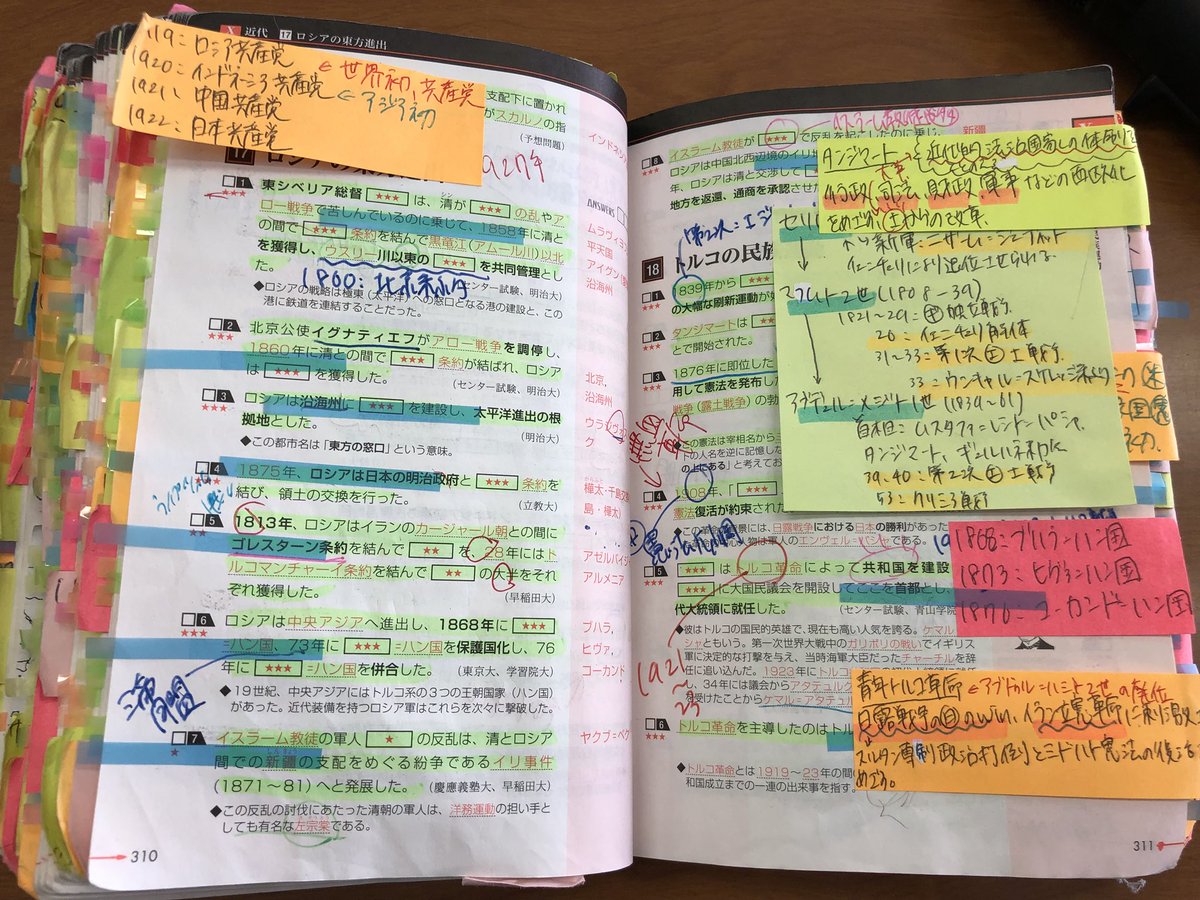 X 近代 17 ロシアの東方進出
1919：ロシア共産党
1920：インドネシア共産党 ← 世界初、共産党
1921：中国共産党 ← アジア初
1922：日本共産党
支配下に置かれ
がスカルノの指
(予想問題)
17
1927年
□1 東シベリア総督 ★★★ は、清が ★★★ の乱やア
★★★ ロー戦争で苦しんでいるのに乗じて、1858年に清と
の間で ★★★ 条約を結んで黒竜江(アムール川)以北
を獲得し、ウスリー川以東の ★★★ を共同管理とし
た。
(センター試験、明治大)
1860：北京条約
◆ロシアの戦略は極東(太平洋)への窓口となる港の建設と、この
港に鉄道を連結することだった。
□2 北京公使イグナティエフがアロー戦争を調停し、
★★★ 1860年に清との間で ★★★ 条約が結ばれ、ロシア
は ★★★ を獲得した。
(センター試験、明治大)
□3 ロシアは沿海州に ★★★ を建設し、太平洋進出の根
★★★ 拠地とした。
(明治大)
◆この都市名は「東方の窓口」という意味。
□4 1875年、ロシアは日本の明治政府と ★★★ 条約を
★★★ 結び、領土の交換を行った。
(立教大)
□5 1813年、ロシアはイランのカージャール朝との間に
★★ ゴレスターン条約を結んで ★★ を、28年にはト
ルコマンチャーイ条約を結んで ★★ の大半をそれ
ぞれ獲得した。
(早稲田大)
□6 ロシアは中央アジアへ進出し、1868年に ★★★
★★★ =ハン国、73年に ★★★ =ハン国を保護国化し、76
年に ★★★ =ハン国を併合した。
(東京大、学習院大)
◆19世紀、中央アジアにはトルコ系の3つの王朝国家(ハン国)
があった。近代装備を持つロシア軍はこれらを次々に撃破した。
□7 イスラーム教徒の軍人 ★ の反乱は、清とロシア
★ 間での新疆の支配をめぐる紛争であるイリ事件
しんきょう
(1871～81)へと発展した。
(慶應義塾大、早稲田大)
◆この反乱の討伐にあたった清朝の軍人は、洋務運動の担い手と
しても有名な左宗棠である。
310
インドネシ
ANSWERS
ムラヴィヨ
平天国
アイグン
沿海州
北京,
沿海州
ウラ
ク
樺太・千島
島・樺太)
アゼルバイジ
アルメニア
ブハラ,
ヒヴァ,
コーカンド
ヤクブ=ベグ
□8 イスラーム教徒が ★★★ で反乱を起こしたのに乗じ、
★★★ ロシアは中国北西辺境のイリ地
年、ロシアは清と交渉して
地方を返還、通商を承認させた
新疆
タンジマート → 近代的法治国家への体制
行政、司法、財政、軍事などの西欧化
をめざす上からの改革。
18 トルコの民族
□1 1839年から ★★★
★★★ の大幅な刷新運動が
□2 タンジマートは
★★★ とで開始された。
□3 1876年に即位した
★★★ 用して憲法を発布した
戦争(露土戦争)の勃
この憲法は宰相名から
下の人名を逆に記憶した
の上にある」と考えてお
□4 1908年、「
★★★ 憲法復活が約束された
には、日露戦争における日本の勝利があった
物は軍人のエンヴェル=パシャである。
□5 ★★★ はトルコ革命によって共和国を建設
★★★ ★★★ に大国民議会を開設してここを首都とし、
代大統領に就任した。
(センター試験、青山学院
◆彼はトルコの国民的英雄で、現在も高い人気を誇る。ケマル=
シャともいう。第一次世界大戦中のガリポリの戦いでイギリス
軍に決定的な打撃を与え、当時海軍大臣だったチャーチルを辞
任に追い込んだ。1923年にトルコ
し、34年には議会からアタテュルク
を受けたことからケマル=アタテュル
□6 トルコ革命を主導したのはト
★★★
◆トルコ革命とは1919～23年の間
和国成立までの一連の出来事を指す。
1921～23
新軍：ニザーム=ジェディット
イェニチェリにより退位させられる
マフムト2世 (1808-39)
1821～29：ギ独立戦争
26：イェニチェリ解体
31～33：第1次エ土戦争
33：ウンキャル=スケレッシ条約
アブデュル=メジト1世 (1839～61)
首相：ムスタファ=レシト=パシャ
タンジマート、ギュルハネ勅令
39-40：第2次エ土戦争
53：クリミア戦争
1868：ブハラ=ハン国
1873：ヒヴァ=ハン国
1876：コーカンド=ハン国
青年トルコ革命 ← アブドゥル=ハミト2世の専制
日露戦争の日のwin、イラン立憲革命に刺激
スルタン専制政治打倒とミドハト憲法の復活を
めざす。
311